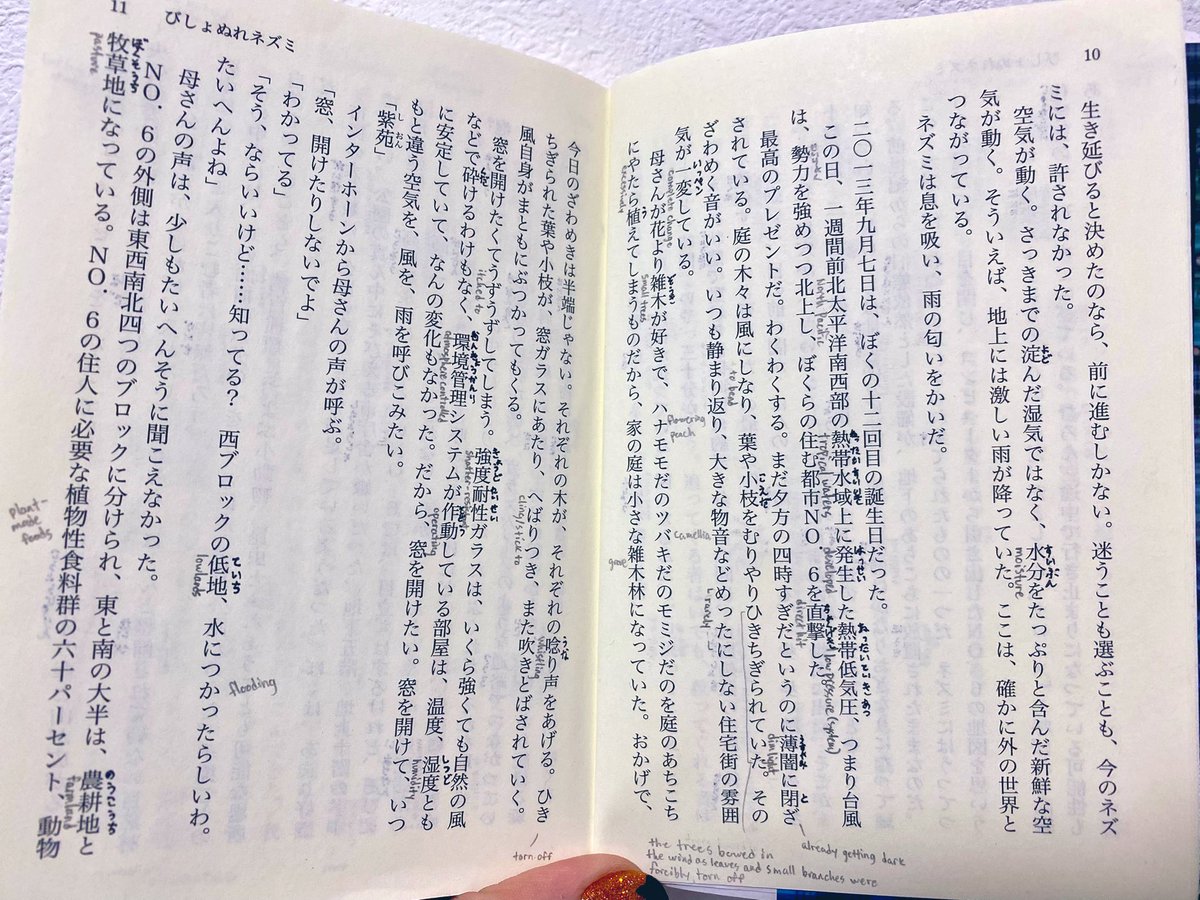 10
生き延びると決めたのなら、前に進むしかない。迷うことも選ぶことも、今のネズ
ミには、許されなかった。
空気が動く。さっきまでの淀んだ湿気ではなく、水分をたっぷりと含んだ新鮮な空
気が動く。そういえば、地上には激しい雨が降っていた。ここは、確かに外の世界と
つながっている。
ネズミは息を吸い、雨の匂いをかいだ。
二〇一三年九月七日は、ぼくの十二回目の誕生日だった。
この日、一週間前北太平洋南西部の熱帯水域上に発生した熱帯低気圧、つまり台風
は、勢力を強めつつ北上し、ぼくらの住む都市NO.6を直撃した
最高のプレゼントだ。わくわくする。まだ夕方の四時すぎだというのに薄闇に閉ざ
されている。庭の木々は風にしなり、葉や小枝をむりやりひきちぎられていた。その
ざわめく音がいい。いつも静まり返り、大きな物音などめったにしない住宅街の雰囲
気が一変している。
母さんが花より雑木が好きで、ハナモモだのツバキだのモミジだのを庭のあちこち
にやたら植えてしまうものだから、家の庭は小さな雑木林になっていた。おかげで、
moisture
North Pacific
tropical waters
developed
low pressure (system)
direct hit
dim light
to bend
rarely
complete change
small trees
flowering peach
camellia
grove
already getting dark
the trees bowed in
the wind as leaves and small branches were
forcibly torn off
11
びしょぬれネズミ
今日のざわめきは半端じゃない。それぞれの木が、それぞれの唸り声をあげる。ひき
ちぎられた葉や小枝が、窓ガラスにあたり、へばりつき、また吹きとばされていく。
風自身がまともにぶつかってもくる。
窓を開けたくてうずうずしてしまう。強度耐性ガラスは、いくら強くても自然の風
などで砕けるわけもなく、環境管理システムが作動している部屋は、温度、湿度とも
に安定していて、なんの変化もなかった。だから、窓を開けたい。窓を開けて、いつ
もと違う空気を、風を、雨を呼びこみたい。
「紫苑」
インターホーンから母さんの声が呼ぶ。
「窓、開けたりしないでよ」
「わかってる」
「そう、ならいいけど……知ってる？　西ブロックの低地、水につかったらしいわ。
たいへんよね」
母さんの声は、少しもたいへんそうに聞こえなかった。
NO.6の外側は東西南北四つのブロックに分けられ、東と南の大半は、農耕地と
牧草地になっている。NO.6の住人に必要な植物性食料群の六十パーセント、動物
torn off
whistling
cling/stick to
itched to
shatter-resistant
atmosphere controlled
operating
humidity
lowlands
flooding
farmland
pasture
plant-
made
foods